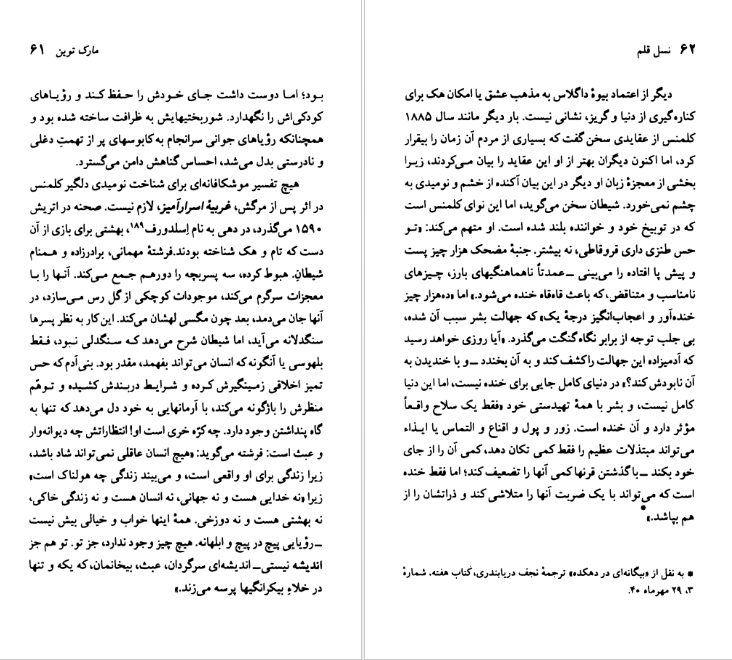 مارک توین ۶۱
بود؛ اما دوست داشت جای خودش را حفظ کند و رؤیاهای
کودکی‌اش را نگهدارد. شوربختیهایش به ظرافت ساخته شده بود و
همچنانکه رؤیاهای جوانی سرانجام به کابوسهای پر از تهمتِ دغلی
و نادرستی بدل می‌شد، احساس گناهش دامن می‌گسترد.
هیچ تفسیر موشکافانه‌ای برای شناخت نومیدی دلگیر کلمنس
در اثر پس از مرگش، غریبهٔ اسرارآمیز، لازم نیست. صحنه در اتریش
۱۵۹۰ می‌گذرد، در دهی به نام اِسلدورف۱۸۹، بهشتی برای بازی از آن
دست که تام و هک شناخته بودند. فرشتهٔ مهمانی، برادرزاده و همنام
شیطان، هبوط کرده، سه پسربچه را دورهم جمع می‌کند. آنها را با
معجزات سرگرم می‌کند، موجودات کوچکی از گل رس می‌سازد، در
آنها جان می‌دمد، بعد چون مگسی لهشان می‌کند. این کار به نظر پسرها
سنگدلانه می‌آید، اما شیطان شرح می‌دهد که سنگدلی نبود، فقط
بلهوسی یا آنگونه که انسان می‌تواند بفهمد، مقدر بود. بنی‌آدم که حس
تمیز اخلاقی زمینگیرش کرده و شرایط دربندش کشیده و توهّم
منظرش را باژگونه می‌کند، با آرمانهایی به خود دل می‌دهد که تنها به
گاه پنداشتن وجود دارد. چه کرّه خری است او! انتظاراتش چه دیوانه‌وار
و عبث است: فرشته می‌گوید: «هیچ انسان عاقلی نمی‌تواند شاد باشد،
زیرا زندگی برای او واقعی است، و می‌بیند زندگی چه هولناک است»
زیرا «نه خدایی هست و نه جهانی، نه انسان هست و نه زندگی خاکی،
نه بهشتی هست و نه دوزخی. همهٔ اینها خواب و خیالی بیش نیست
ــ رؤیایی پیچ در پیچ و ابلهانه. هیچ چیز وجود ندارد، جز تو. تو هم جز
اندیشه نیستی ــ اندیشه‌ای سرگردان، عبث، بیخانمان، که یکه و تنها
در خلاءِ بیکرانگیها پرسه می‌زند.»
۶۲ نسل قلم
دیگر از اعتماد بیوهٔ داگلاس به مذهب عشق یا امکان هک برای
کناره‌گیری از دنیا و گریز، نشانی نیست. بار دیگر مانند سال ۱۸۸۵
کلمنس از عقایدی سخن گفت که بسیاری از مردم آن زمان را بیقرار
کرد، اما اکنون دیگران بهتر از او این عقاید را بیان می‌کردند، زیرا
بخشی از معجزهٔ زبان او دیگر در این بیان آکنده از خشم و نومیدی به
چشم نمی‌خورد. شیطان سخن می‌گوید، اما این نوای کلمنس است
که در توبیخ خود و خواننده بلند شده است. او متهم می‌کند: «تو
حس طنزی داری قروقاطی، نه بیشتر. جنبهٔ مضحک هزار چیز پست
و پیش پا افتاده را می‌بینی ــ عمدتاً ناهماهنگیهای بارز، چیزهای
نامناسب و متناقض، که باعث قاه‌قاه خنده می‌شود.» اما «ده‌هزار چیز
خنده‌آور و اعجاب‌انگیز درجهٔ یک» که جهالت بشر سبب آن شده،
بی جلب توجه از برابر نگاه گنگت می‌گذرد. «آیا روزی خواهد رسید
که آدمیزاده این جهالت را کشف کند و به آن بخندد ــ و با خندیدن به
آن نابودش کند؟» در دنیای کامل جایی برای خنده نیست، اما این دنیا
کامل نیست، و بشر با همهٔ تهیدستی خود «فقط یک سلاح واقعاً
مؤثر دارد و آن خنده است. زور و پول و اقناع و التماس یا ایذاء
می‌تواند مبتذلات عظیم را فقط کمی تکان دهد، کمی آن را از جای
خود بکند ــ با گذشتن قرنها کمی آنها را تضعیف کند؛ اما فقط خنده
است که می‌تواند با یک ضربت آنها را متلاشی کند و ذراتشان را از
هم بپاشد.»*
* به نقل از «بیگانه‌ای در دهکده» ترجمهٔ نجف دریابندری، کتاب هفته، شمارهٔ
۳، ۲۹ مهرماه ۴۰.